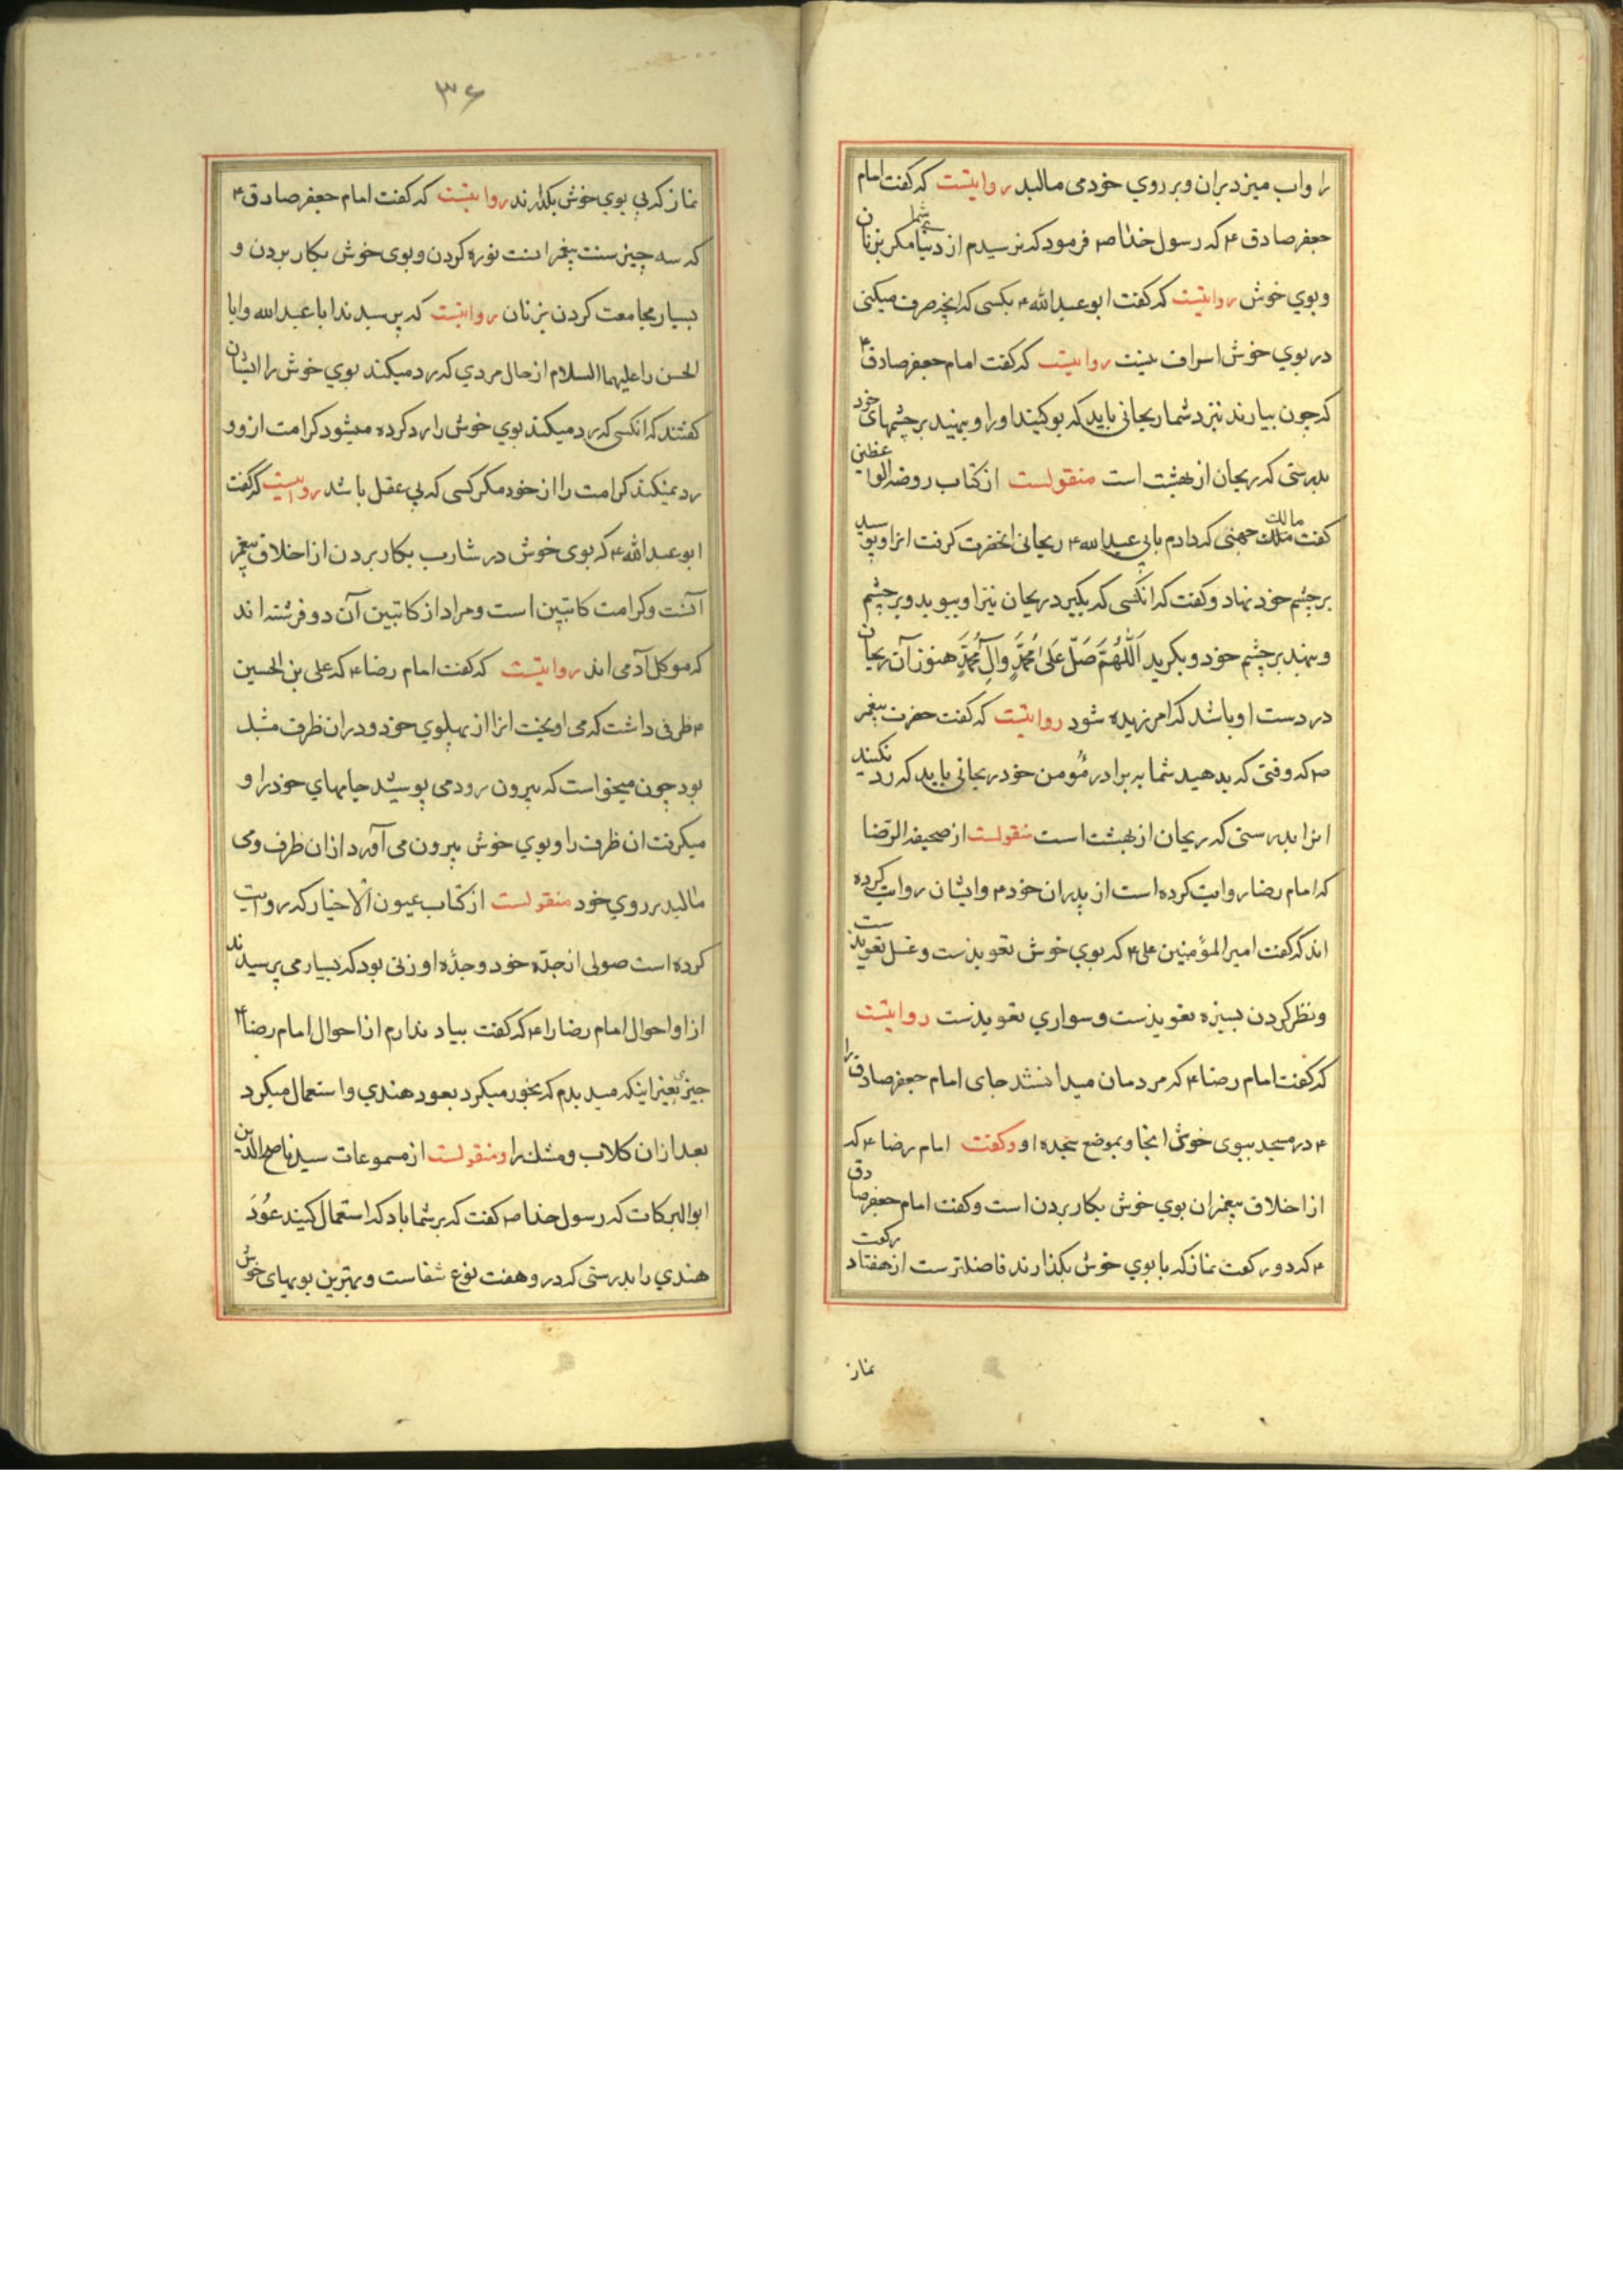 را واب میزد بران و بر روي خود می مالید روایتست که گفت امام
جعفر صادق ۴ که رسول خدا ص فرمود که نرسیدم از دنیا شما مگر بزنان
و بوي خوش روایتست که گفت ابو عبدالله ۴ بکسی که انچه صرف میکنی
در بوي خوش اسراف نیست روایتست که گفت امام جعفر صادق ۴
که چون بیارند نزد شما ریحانی باید که بو کنید او را و بنهید بر چشمهای خود
بدرستی که ریحان از بهشت است منقولست از کتاب روضه الواعظین
گفت مالك جهنی که دادم بابی عبدالله ۴ ریحانی انحضرت گرفت انرا و بوسید
بر چشم خود نهاد و گفت که انکسی که بگیرد ریحان نیز او ببوید و بر چشم
و بنهد بر چشم خود و بگرید اَللّهُمَّ صَلِّ عَلی مُحَمَّدٍ وَآلِ مُحَمَّدٍ هنوز آن ریحان
در دست او باشد که امرزیده شود روایتست که گفت حضرت پیغمبر
ص که وقتی که بدهید شما به برادر مؤمن خود ریحانی باید که رد نکنند
انرا بدرستی که ریحان از بهشت است منقولست از صحیفه الرّضا
که امام رضا روایت کرده است از پدران خود ۴ و ایشان روایت کرده
اند که گفت امیر المؤمنین علی ۴ که بوي خوش تعویذست و غسل تعویذست
و نظر کردن بسبزه تعویذست و سواري تعویذست روایتست
که گفت امام رضا ۴ که مردمان میدانستند جای امام جعفر صادق را
۴ در مسجد ببوی خوش انجا و بموضع سجده او و گفت امام رضا ۴ که
از اخلاق پیغمبران بوي خوش بکار بردن است و گفت امام جعفر صادق
۴ که دو رکعت نماز که با بوي خوش بگذارند فاضلترست از هفتاد رکعت
نماز
۳۶
نماز که بی بوي خوش بگذارند روایتست که گفت امام جعفر صادق ۴
که سه چیز سنت پیغمبرانست نوره کردن و بوی خوش بکار بردن و
بسیار مجامعت کردن بزنان روایتست که پرسیدند ابا عبدالله و ابا
الحسن را علیهما السلام از حال مردي که رد میکند بوي خوش را ایشان
گفتند که انکسی که رد میکند بوي خوش را رد کرده میشود کرامت از و و
رد نمیکند کرامت را از خود مگر کسی که بی عقل باشد روایتست که گفت
ابو عبدالله ۴ که بوی خوش در شارب بکار بردن از اخلاق پیغمبر
آنست و کرامت کاتبین است و مراد از کاتبین آن دو فرشته اند
که موکل آدمی اند روایتست که گفت امام رضا ۴ که علی بن الحسین
۴ ظرفی داشت که می اویخت انرا از پهلوي خود و دران ظرف مشک
بود چون میخواست که بیرون رود می پوشید جامهاي خود را و
میگرفت ان ظرف را و بوي خوش بیرون می آورد ازان ظرف و می
مالید بر روي خود منقولست از کتاب عیون الاخبار که روایت
کرده است صولی از جدّه خود و جدّه او زنی بود که بسیار می پرسیدند
از او احوال امام رضا را ۴ که گفت بیاد ندارم از احوال امام رضا ۴
چیزی بغیر اینکه میدیدم که بخور میکرد بعود هندي و استعمال میکرد
بعد ازان گلاب و مشك را و منقولست از مسموعات سید ناصح الدین
ابو البرکات که رسول خدا ص گفت که بر شما باد که استعمال کنید عُودَ
هندي را بدرستی که در و هفت نوع شفاست و بهترین بویهای خوش